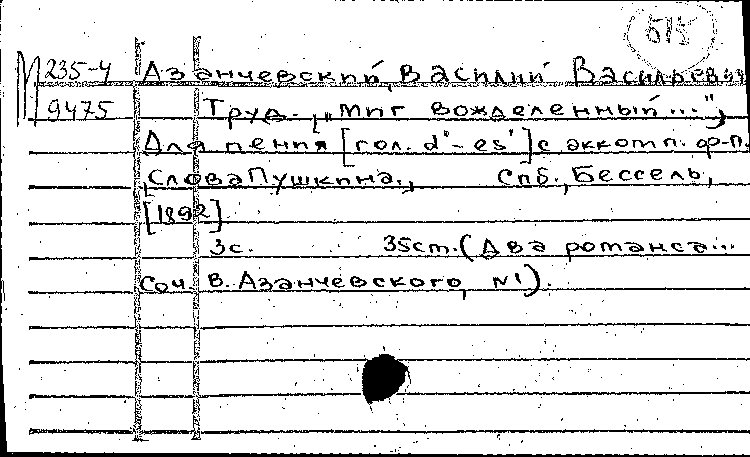 515
М 235-4 Азанчевский, Василий Васильевич
9475 Труд. [„Миг вожделенный..."],
Для пения [гол. d'-es'] с аккомп. ф-п.
Слова Пушкина., Спб., Бессель,
[1892]
3с. 35cm. (Два романса...
Соч. В. Азанчевского, №1).